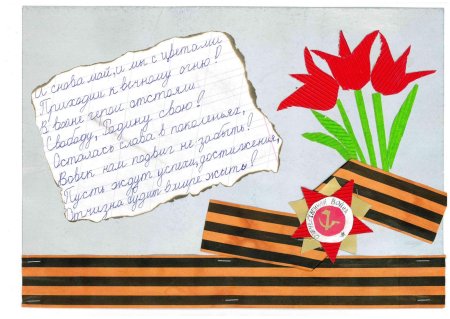 И снова май, и мы с цветами
Приходим к вечному огню!
В войне герои отстояли
Свободу, Родину свою!
Осталась слава в поколеньях,
Вовек нам подвиг не забыть!
Пусть ждут успехи, достижения,
Отчизна будет в мире жить!
ОТЕЧЕСТВЕННАЯ ВОЙНА